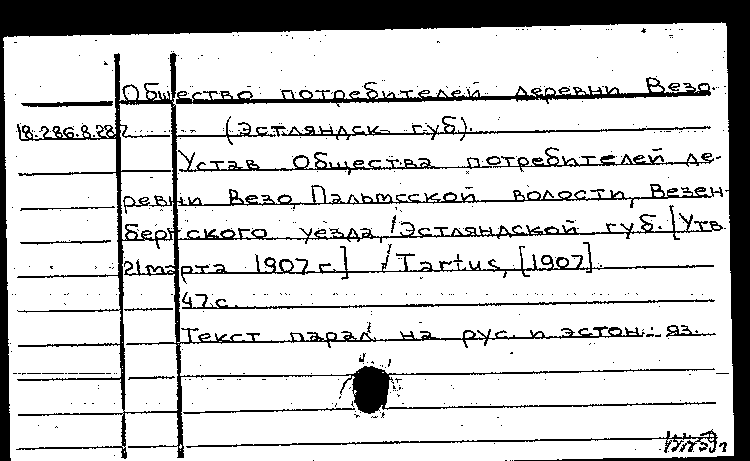 Общество потребителей деревни Везо
18.286.8.282 (Эстляндск. губ).
Устав Общества потребителей де-
ревни Везо, Пальмсской волости, Везен-
бергского уезда, /Эстляндской губ. [Утв.
21 марта 1907 г.] /Tartus, [1907].
47 с.
Текст парал. на рус. и эстон. яз.